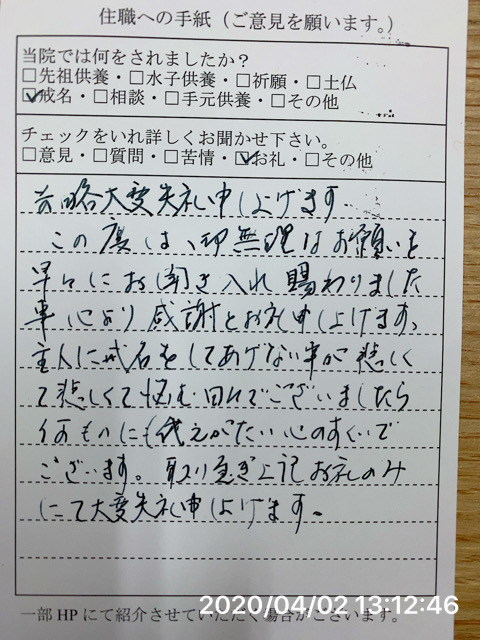 住職への手紙（ご意見を願います。）
当院では何をされましたか？
□先祖供養・□水子供養・□祈願・□土仏
☑戒名・□相談・□手元供養・□その他
チェックをいれ詳しくお聞かせ下さい。
□意見・□質問・□苦情・☑お礼・□その他
前略大変失礼申し上げます。
この度は、御無理なお願いを
早々にお聞き入れ賜わりました
事心より感謝とお礼申し上げます。
主人に戒名をしてあげない事が悲しく
て悲しくて悩む日々でございましたら
何ものにも代えがたい心のすくいで
ございます。取り急ぎ上記お礼のみ
にて大変失礼申し上げます。
一部HPにて紹介させていただく場合がございます。
2020/04/02 13:12:46